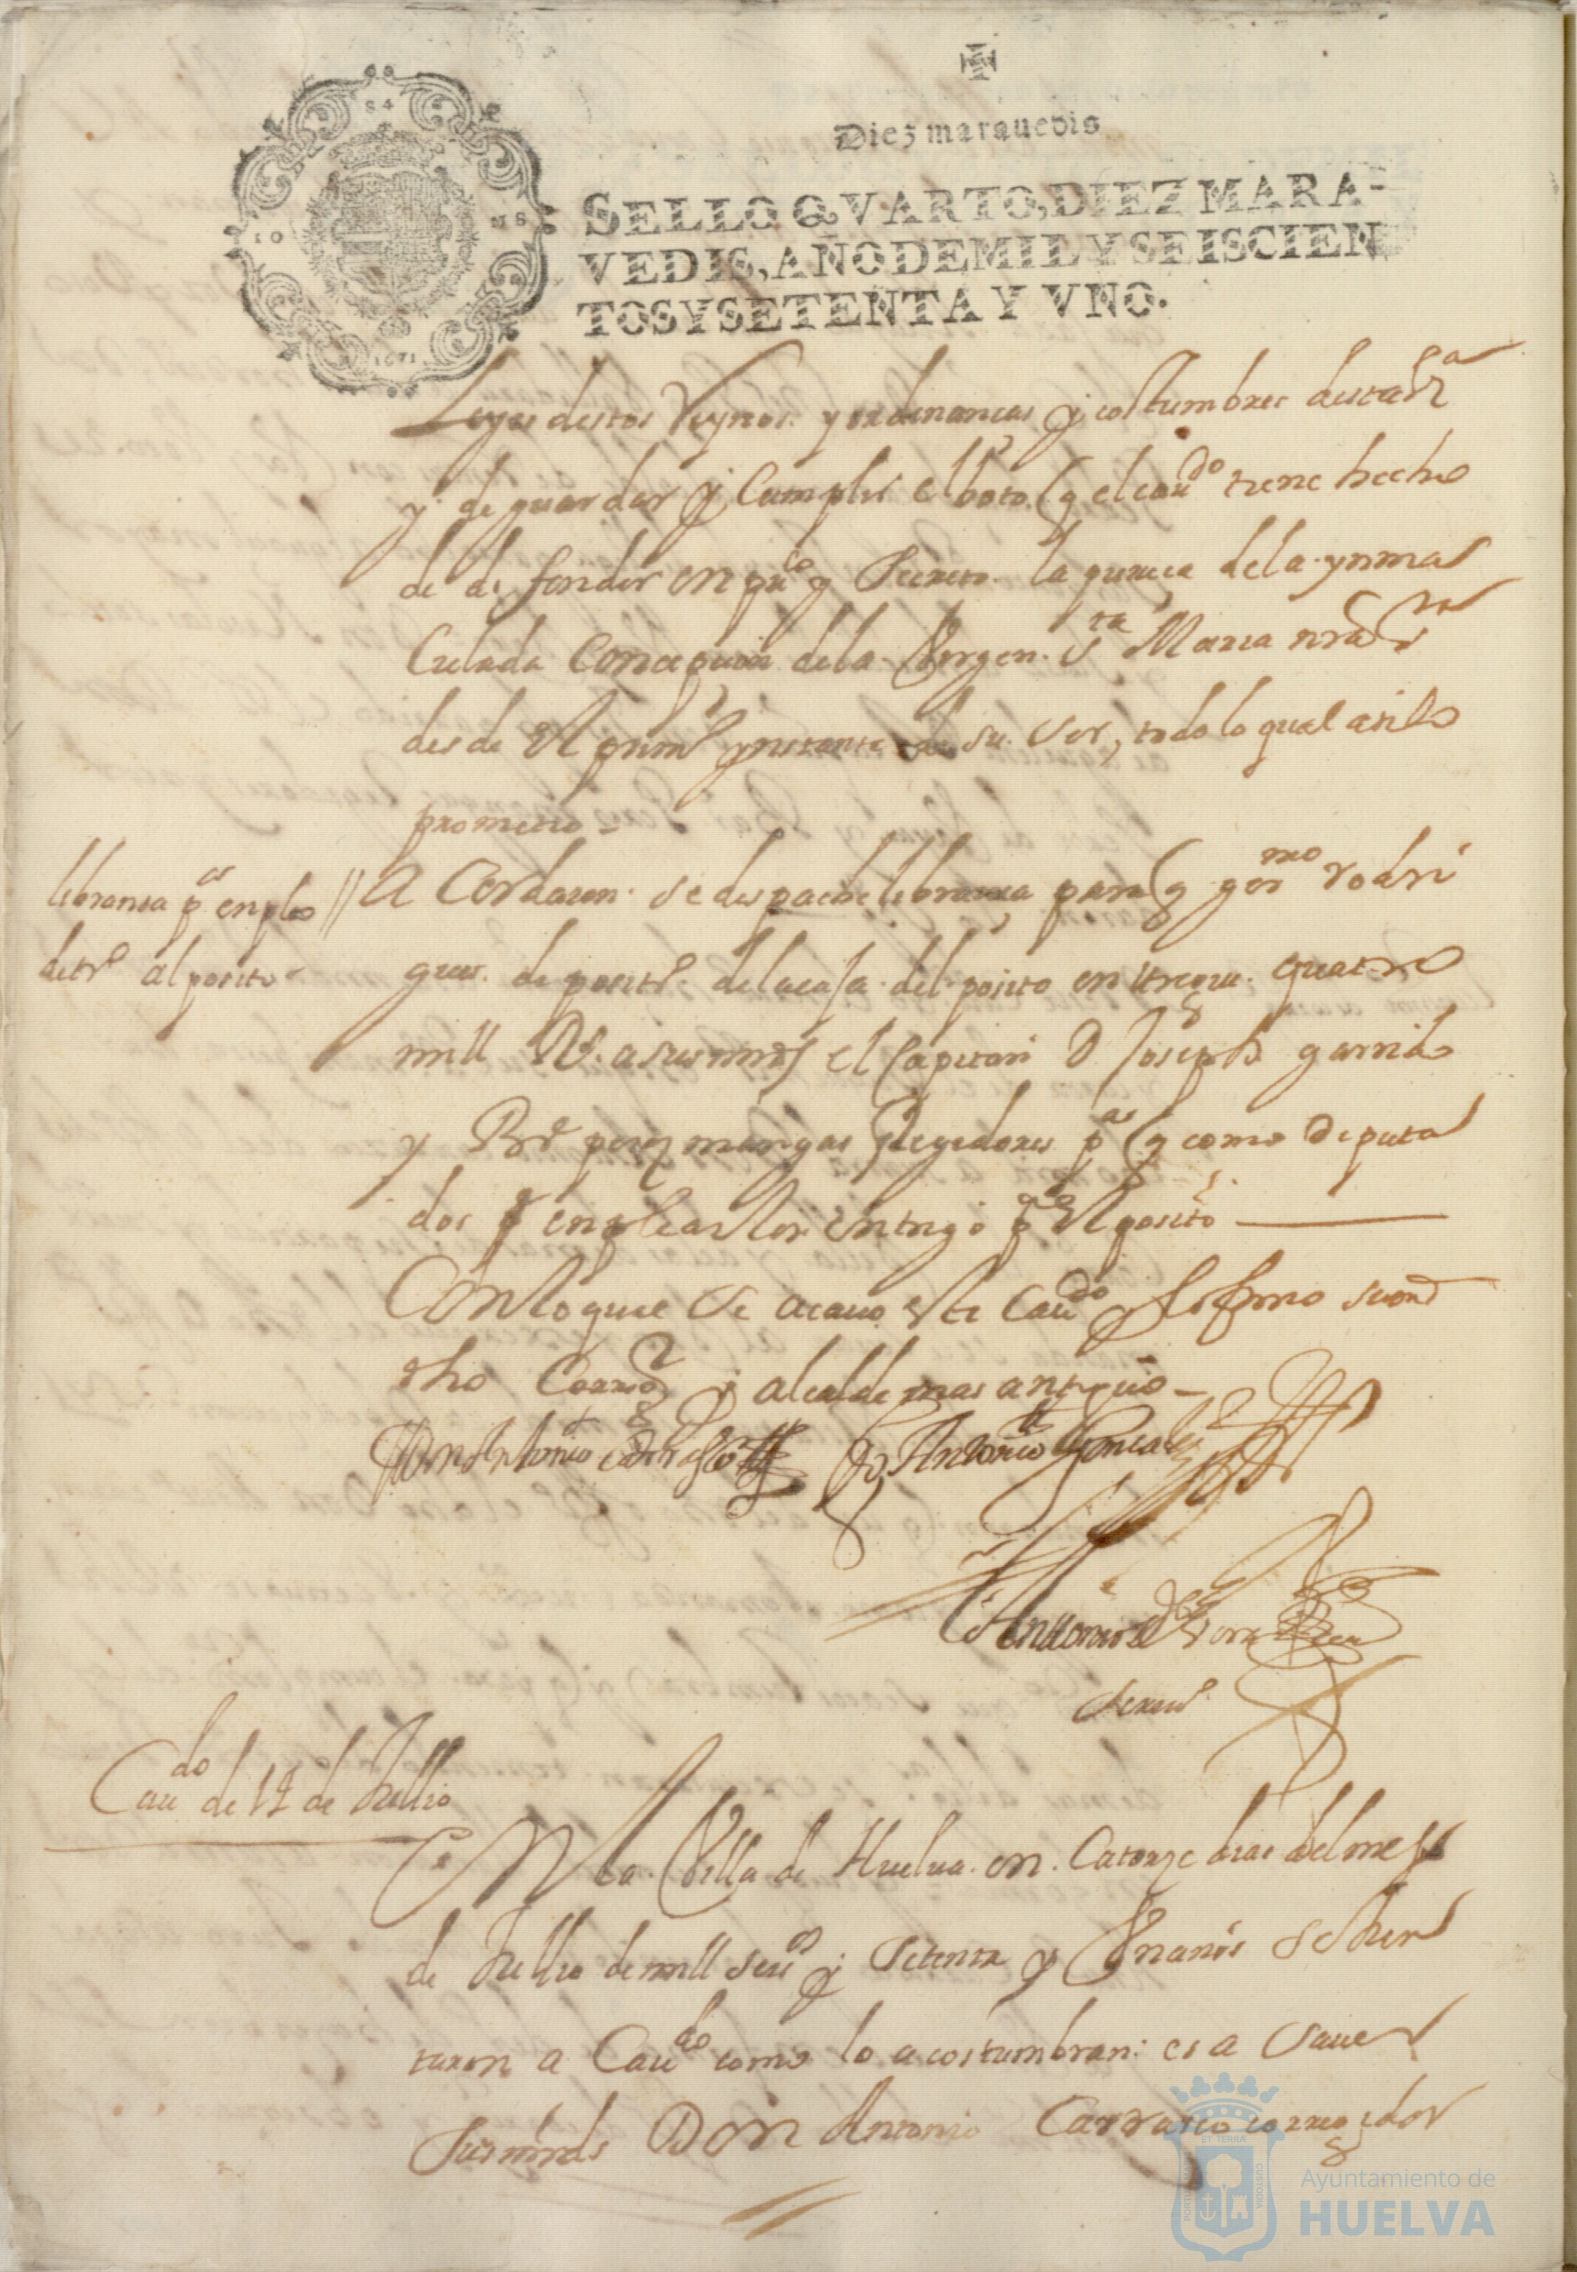 Diez marauedis
SELLO QVARTO, DIEZ MARA-
VEDIS, AÑO DE MIL Y SEISCIEN
TOS Y SETENTA Y VNO.
1671
Leyes destos Reynos y ordenancas y costumbres desta
y de guardar y Cumplir el boto q el caudo tiene hecho
de defender en puco y Secreto la pureça de la ynma
Culada Concepcion de la Virgen Sta Maria nra Sra
desde el primo ynstante de su Ser, todo lo qual asi lo
prometio
libranza pa enpleo
de trо al posito
Acordaron se despache libranza para q germo rodri
gues de posito de la casa del posito entregue quatro
mill Rs a sus mrds el Capitan D Joseph garrido
y Bre perez mangas Regidores pa q como diputa
dos pa enplearlos en trigo pa el posito
Con lo qual se acauo este Caudo y lo firmo su md
dho Corregor y alcalde mas antiguo
Don Antonio Carrasco Do Antonio Gonçales
Antonio de
Screuo
Caudo de 14 de Jullio
En la Villa de Huelua en Catorze dias del mes
de Jullio de mill seisos y Setenta y Un años se Jun
taron a Caudo como lo acostumbran es a Sauer
Sus mrds Don Antonio Carrasco corregidor
Ayuntamiento de
HUELVA